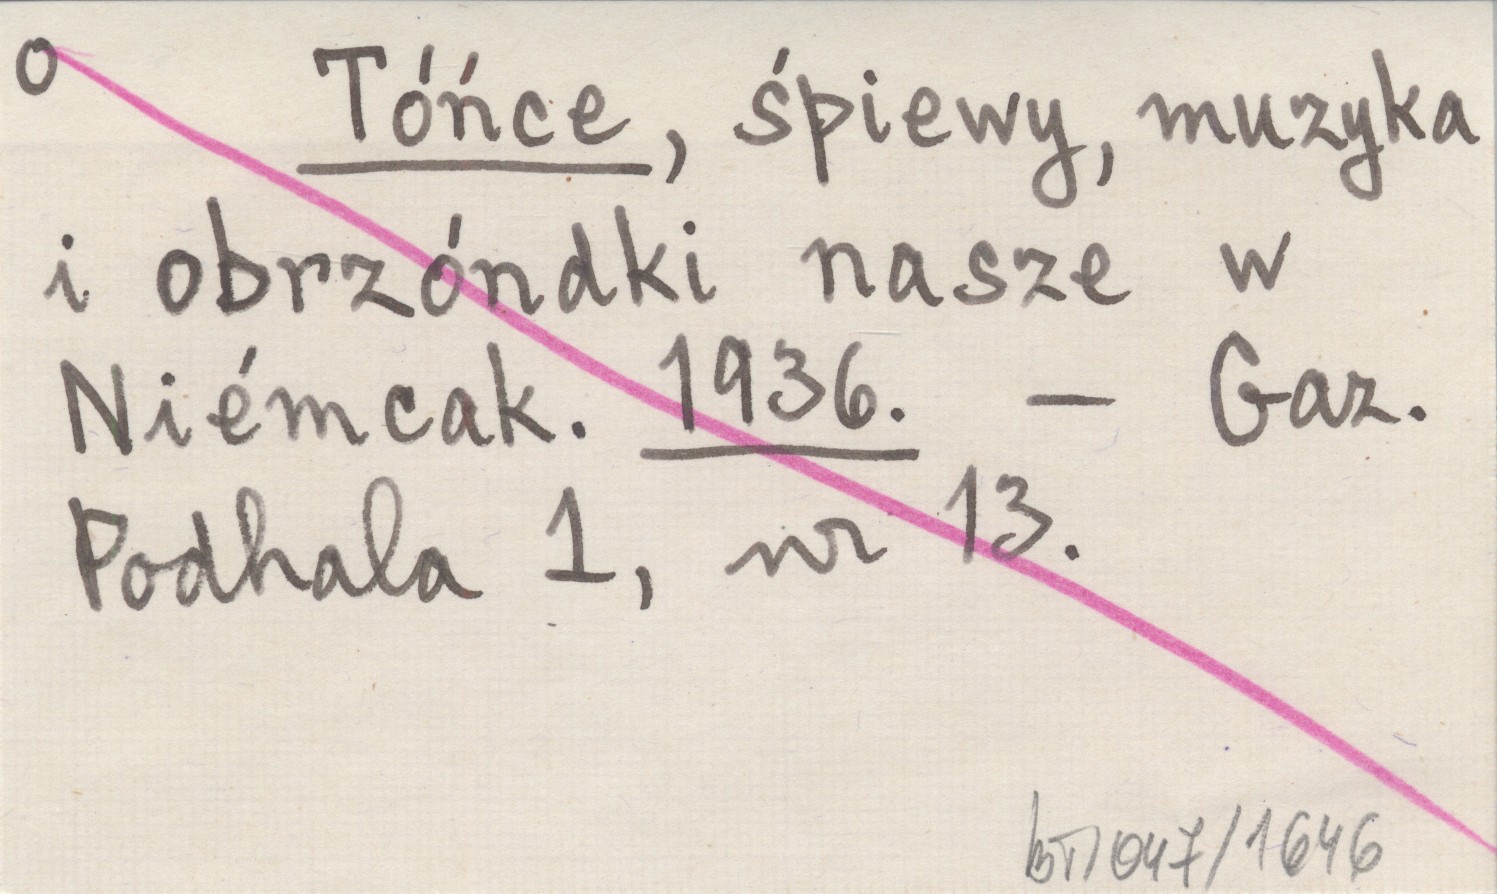 o Tóńce, śpiewy, muzyka
i obrzóndki nasze w
Niémcak. 1936. — Gaz.
Podhala 1, nr 13.
047/1646